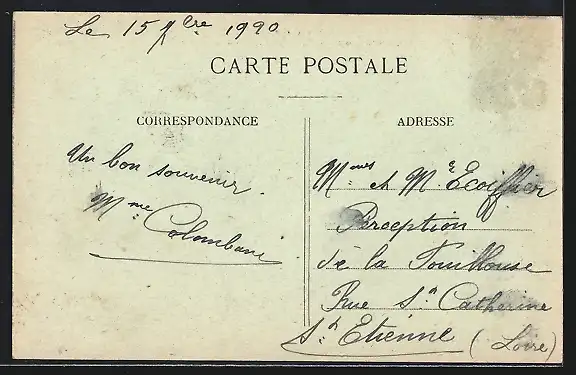 Le 15 7bre 1920.
CARTE POSTALE
CORRESPONDANCE
ADRESSE
Un bon souvenir.
Mme Colombani
Mmes et Mr Ecoiffier
Perception
de la Fouillouse
Rue Ste Catherine
St Etienne (Loire)